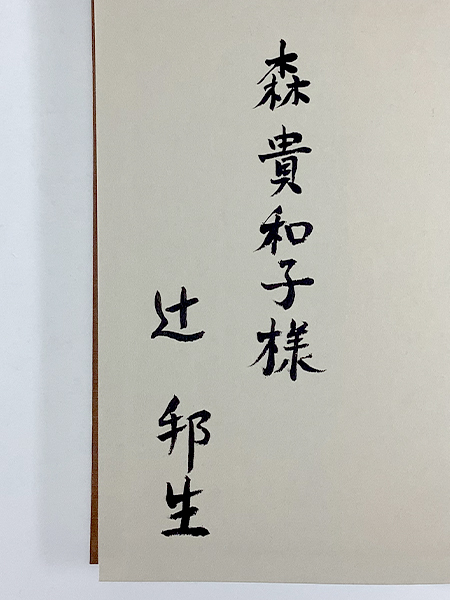 森貴和子様
辻邦生